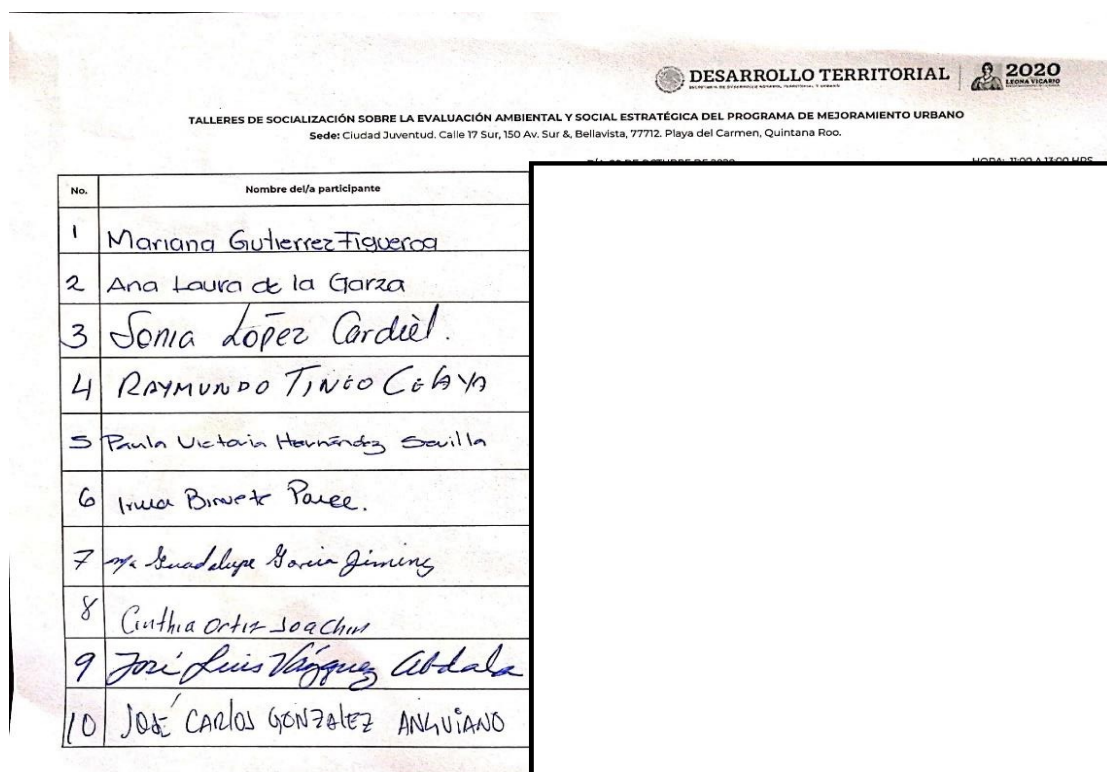 DESARROLLO TERRITORIAL
SECRETARÍA DE DESARROLLO AGRARIO, TERRITORIAL Y URBANO
2020
LEONA VICARIO
TALLERES DE SOCIALIZACIÓN SOBRE LA EVALUACIÓN AMBIENTAL Y SOCIAL ESTRATÉGICA DEL PROGRAMA DE MEJORAMIENTO URBANO
Sede: Ciudad Juventud. Calle 17 Sur, 150 Av. Sur &, Bellavista, 77712. Playa del Carmen, Quintana Roo.
DE OCTUBRE DE 2020 HORA: 11:00 A 13:00 HRS
No. Nombre del/a participante
1 Mariana Gutierrez Figueroa
2 Ana Laura de la Garza
3 Sonia López Cardièl.
4 RAYMUNDO TINEO CELAYA
5 Paula Victoria Hernández Sevilla
6 Irma
7 Ma Guadalupe Garcia Jiminz
8 Cinthia Ortiz Joachin
9 José Luis Vázquez Abdala
10 JOSÉ CARLOS GONZALEZ ANGUIANO